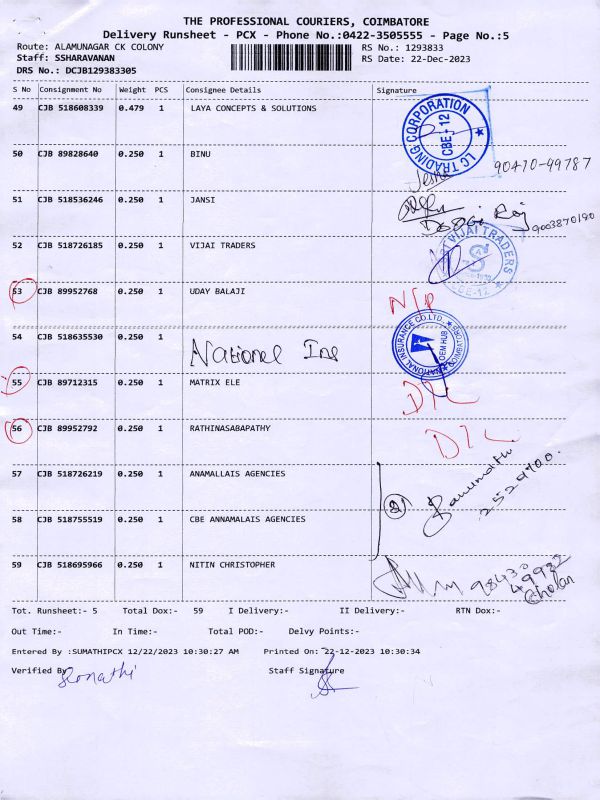 THE PROFESSIONAL COURIERS, COIMBATORE
Delivery Runsheet - PCX - Phone No.:0422-3505555 - Page No.:5
Route: ALAMUNAGAR CK COLONY RS No.: 1293833
Staff: SSHARAVANAN RS Date: 22-Dec-2023
DRS No.: DCJB129383305
S No Consignment No Weight PCS Consignee Details Signature
49 CJB 518608339 0.479 1 LAYA CONCEPTS & SOLUTIONS
LC TRADING CORPORATION
CBE-12
50 CJB 89828640 0.250 1 BINU
90470-49787
51 CJB 518536246 0.250 1 JANSI
9003870190
52 CJB 518726185 0.250 1 VIJAI TRADERS
VIJAI TRADERS
53 CJB 89952768 0.250 1 UDAY BALAJI
54 CJB 518635530 0.250 1 National Ins
NATIONAL INSURANCE CO.LTD.
55 CJB 89712315 0.250 1 MATRIX ELE D/L
56 CJB 89952792 0.250 1 RATHINASABAPATHY D/L
57 CJB 518726219 0.250 1 ANAMALLAIS AGENCIES
58 CJB 518755519 0.250 1 CBE ANNAMALAIS AGENCIES
59 CJB 518695966 0.250 1 NITIN CHRISTOPHER
98430
49932
Cholan
Tot. Runsheet:- 5 Total Dox:- 59 I Delivery:- II Delivery:- RTN Dox:-
Out Time:- In Time:- Total POD:- Delvy Points:-
Entered By :SUMATHIPCX 12/22/2023 10:30:27 AM Printed On: 22-12-2023 10:30:34
Verified By Staff Signature